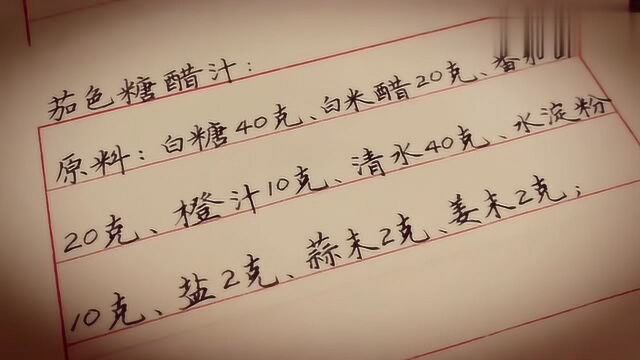 茄色糖醋汁:
原料:白糖40克、白米醋20克、香
20克、橙汁10克、清水40克、水淀粉
10克、盐2克、蒜末2克、姜末2克;